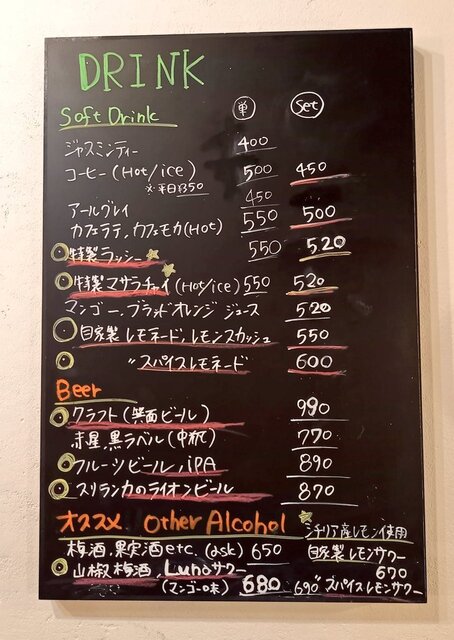 DRINK
Soft Drink 単 Set
ジャスミンティー 400
コーヒー (Hot/ice) 500 450
※平日¥350
アールグレイ 450
カフェラテ、カフェモカ(Hot) 550 500
特製ラッシー 550 520
特製マサラチャイ (Hot/ice) 550 520
マンゴー、ブラッドオレンジ ジュース 520
自家製 レモネード、レモンスカッシュ 550
〃スパイスレモネード 600
Beer
クラフト (箕面ビール) 990
赤星、黒ラベル (中瓶) 770
フルーツビール、iPA 890
スリランカのライオンビール 870
オススメ Other Alcohol
梅酒、果実酒etc. (ask) 650
山椒梅酒、Lunaサワー
(マンゴー味) 680
シチリア産レモン使用
自家製レモンサワー
670
690 〃スパイスレモンサワー